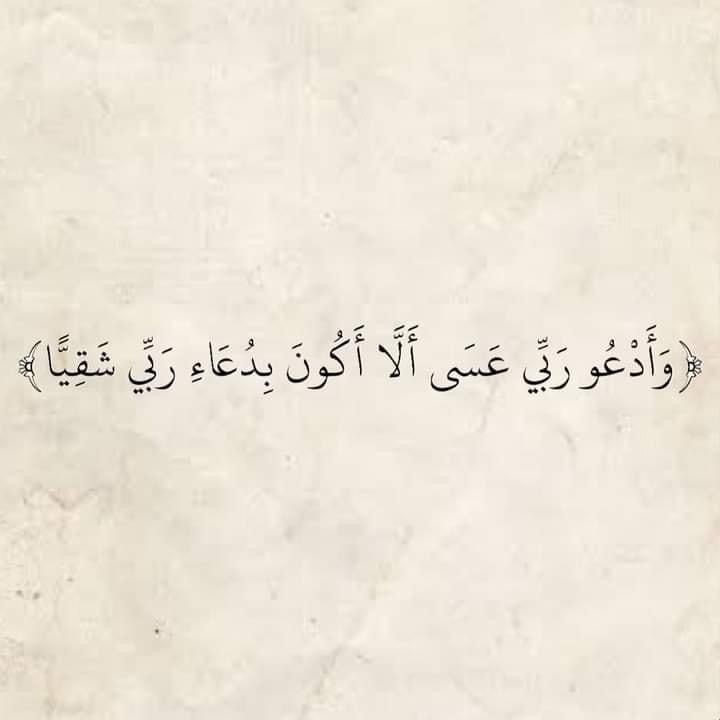 ﴿وَأَدْعُو رَبِّي عَسَى أَلَّا أَكُونَ بِدُعَاءِ رَبِّي شَقِيًّا﴾